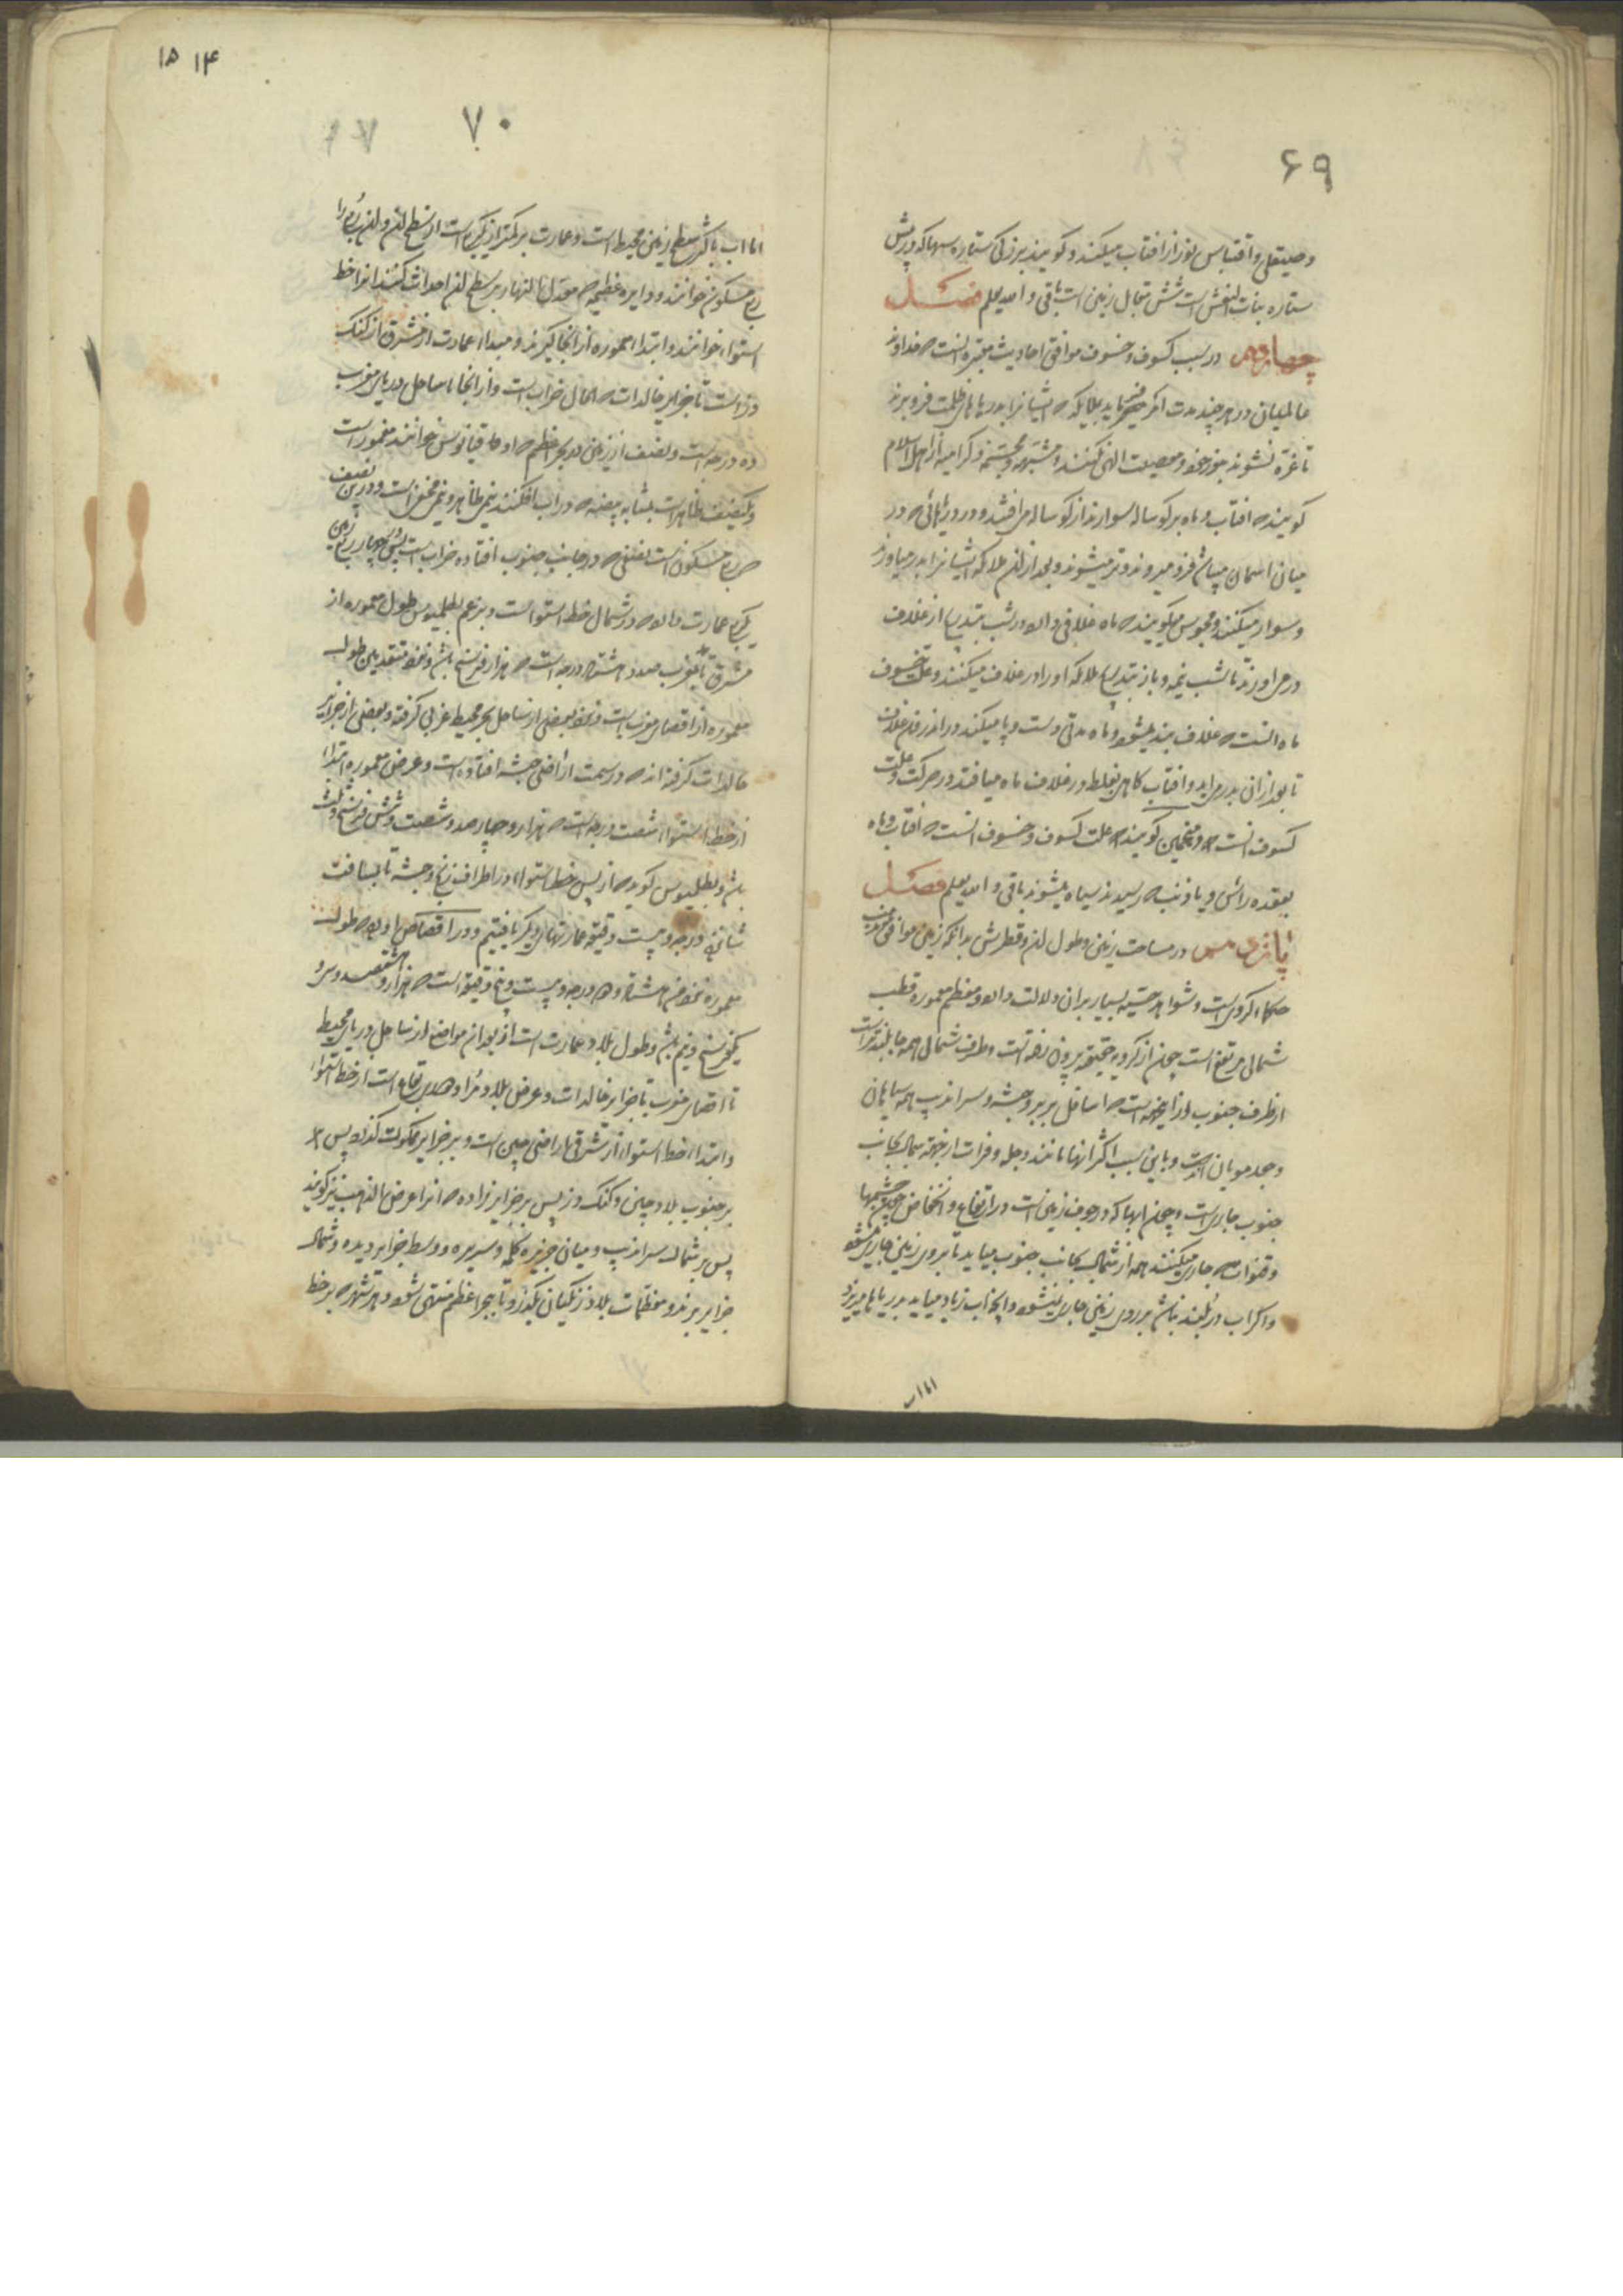 ۶۹
و صیقلی و اقتباس نور از افتاب میکنند و کویند بزرکی ستاره سها که در پیش
ستاره بنات النعش است شش مقابل زمین است باقی و الله یعلم فصل
چهاردهم در سبب کسوف و خسوف موافق احادیث معتبره انست که خداوند
عالمیان در هر چند مدت امر میفرماید بملایکه که ایشانرا بدریاهای ظلمت فرو برند
تا غره نشوند بنور خود و معصیت الهی نکنند و مشبهه و مجسمه و کرامیه از اهل اسلام
کویند که افتاب و ماه بر کوساله سوارند از کوساله می افتند و در دریائی که در
میان اسمان میباشد فرو میروند و تر میشوند و بعد از ان ملائکه ایشانرا بدر میاورند
و سوار میکنند و مجوس میکویند که ماه غلافی دارد در شب بتدریج از غلاف
در می اورند تا شب نیمه و باز بتدریج ملائکه او را در غلاف میکنند و علت خسوف
ماه انست که غلاف بند میشود و ماه مدتی دست و پا میکند در اندرون غلاف
تا بعد از ان بدر می اید و افتاب کاهی بغلط در غلاف ماه میافتد در حرکت و علت
کسوف انست و منجمین کویند که علت کسوف و خسوف انست که افتاب و ماه
بعقده راس و یا ذنب که رسیدند سیاه میشوند باقی و الله یعلم فصل
پانزدهم در مساحت زمین و طول ان و قطرش بدانکه زمین موافق مذهب
حکما کرویست و شواهد حسیه بسیار بران دلالت دارد و معظم معموره قطب
شمالی مرتفع است چون از کرویه حقیقیه بیرون رفته است و طرف شمالی همه جا بلندتر است
از طرف جنوب از اینجهه است که اسافل بربر و حبشه و سراندیب همه سیاهان
و جعد مویان اند و باین سبب اکثر انها مانند دجله و فرات از جهة شمال بجانب
جنوب جاریست و چون ابها که در جوف زمین است در ارتفاع و انخفاض چون چشمها
و قنوات که جاری میکنند همه از شمال بجانب جنوب میاید تا بروی زمین جاری میشود
و اکر اب در بلند نباشد بر روی زمین جاری نمیشود و انچه اب زیاد میاید بدریاها میریزد
اما اب
۱۴ ۱۵
۷۰
اما اب باکثر سطح زمین محیط است و عمارت بر کمتر از یکربع است از سطح ان و ان ربع را
ربع مسکون خوانند و دایره عظیمه که معدل النهار بر سطح ان احداث کند انرا خط
استواء خوانند و ابتداء معموره از انجا کیرند و مبداء عمارت از مشرق از کنک
دز است تا جزایر خالدات که الحال خراب است و از انجا تا ساحل دریای مغرب
ده درجه است و نصف از زمین در بحر اعظم که او را اوقیانوس خوانند مغمور است
و یکنصف ظاهر است بمثابه بیضه که در اب افکنند نیمی ظاهر و نیمی مخفی است و در این نصف
که ربع مسکون است نصفی که در جانب جنوب افتاده خراب است پس از چهار ربع زمین
یکربع عمارت دارد که در شمال خط استوا است و بزعم بطلمیوس طول معموره از
مشرق تا مغرب صد و هشتاد درجه است که هزار فرسخ باشد و نزد متقدمین طول
معموره از اقصای مغرب است و نزد بعضی از ساحل بحر محیط غربی کرفته و بعضی از جزایر
خالدات کرفته اند که در سمت اراضی حبشه افتاده است و عرض معموره ابتداء
از خط استواء شصت درجه است که هزار و چهار صد و شصت و شش فرسخ و ثلث
باشد و بطلمیوس کوید که از پس خط استواء در اطراف زنج و حبشه تا بمسافت
شانزده درجه و بیست و پنج دقیقه عمارتهای دیکر یافتیم و در اقصای او بود که طول
معموره نزد من هشتاد و درجه و بیست و پنج دقیقه است که هزار و هشتصد و سی و
یکفرسخ و نیم باشد و طول بلاد عبارت است از بعد ان مواضع از ساحل دریای محیط
تا اقصای مغرب یا جزایر خالدات و عرض بلاد مراد بعد ارتفاع است از خط استواء
و ابتداء خط استواء از مشرق اراضی چین است و بر جزایر کذرد پس
بر جنوب بلاد چین و کنک دز پس بر جزایر زاده که انرا عرض الذهب نیز کویند
پس بر شمال سراندیب و میان جزیره کله و سریره و وسط جزایر دیده و شمال
جزایر بربر و معظمات بلاد زنکیان بکذرد تا ببحر اعظم منتهی شود و هر شهر که بر خط